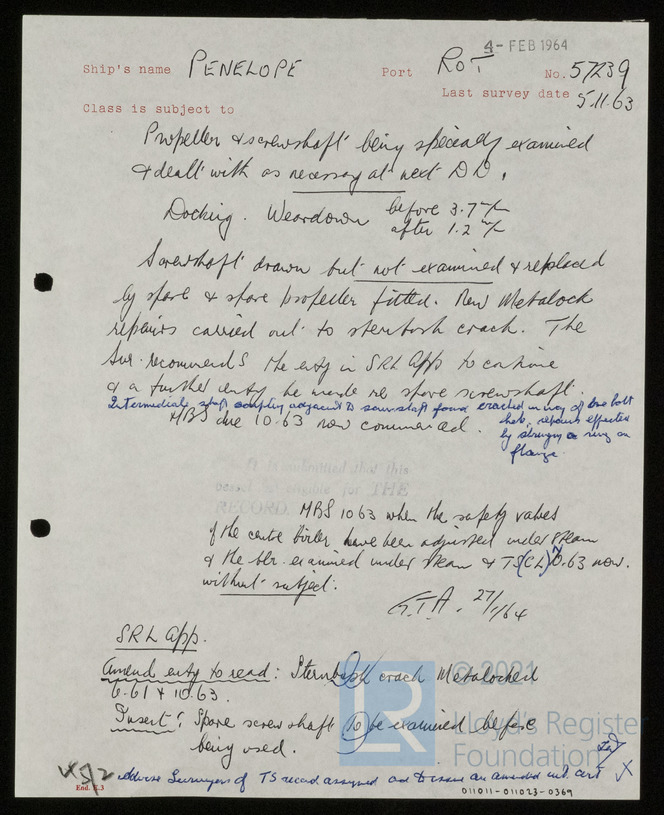 4 - FEB 1964
Ship's name PENELOPE Port ROT No. 57239
Last survey date 5.11.63
Class is subject to
Propeller & screwshaft being specially examined
& dealt with as necessary at next DD.
Docking. Weardown before 3.7 m/m
after 1.2 m/m
Screwshaft drawn but not examined & replaced
by spare & spare propeller fitted. New Metalock
repairs carried out to sternbush crack. The
Sur. recommends the entry in SRL App to continue
& a further entry be made re spare screwshaft.
Intermediate shaft coupling adjacent to screwshaft found cracked in way of one bolt
hole, repairs effected
by shrunk a ring on
flange.
MBS due 10.63 now commenced.
It is submitted that this
vessel is eligible for THE
RECORD. MBS 10.63 when the safety valves
of the centre boiler have been adjusted under steam
& the blr. examined under steam & TS(CL) 10.63 now.
without subject.
G.T.A. 27/1/64
SRL App.
Amend entry to read: Sternbush crack Metalocked
6.61 & 10.63.
Insert: Spare screwshaft to be examined before
being used.
Advise Surveyors of TS record assigned and to issue an amended int. cert X
End. K.3
011011-011023-0369
LR © 2021
Lloyd's Register
Foundation